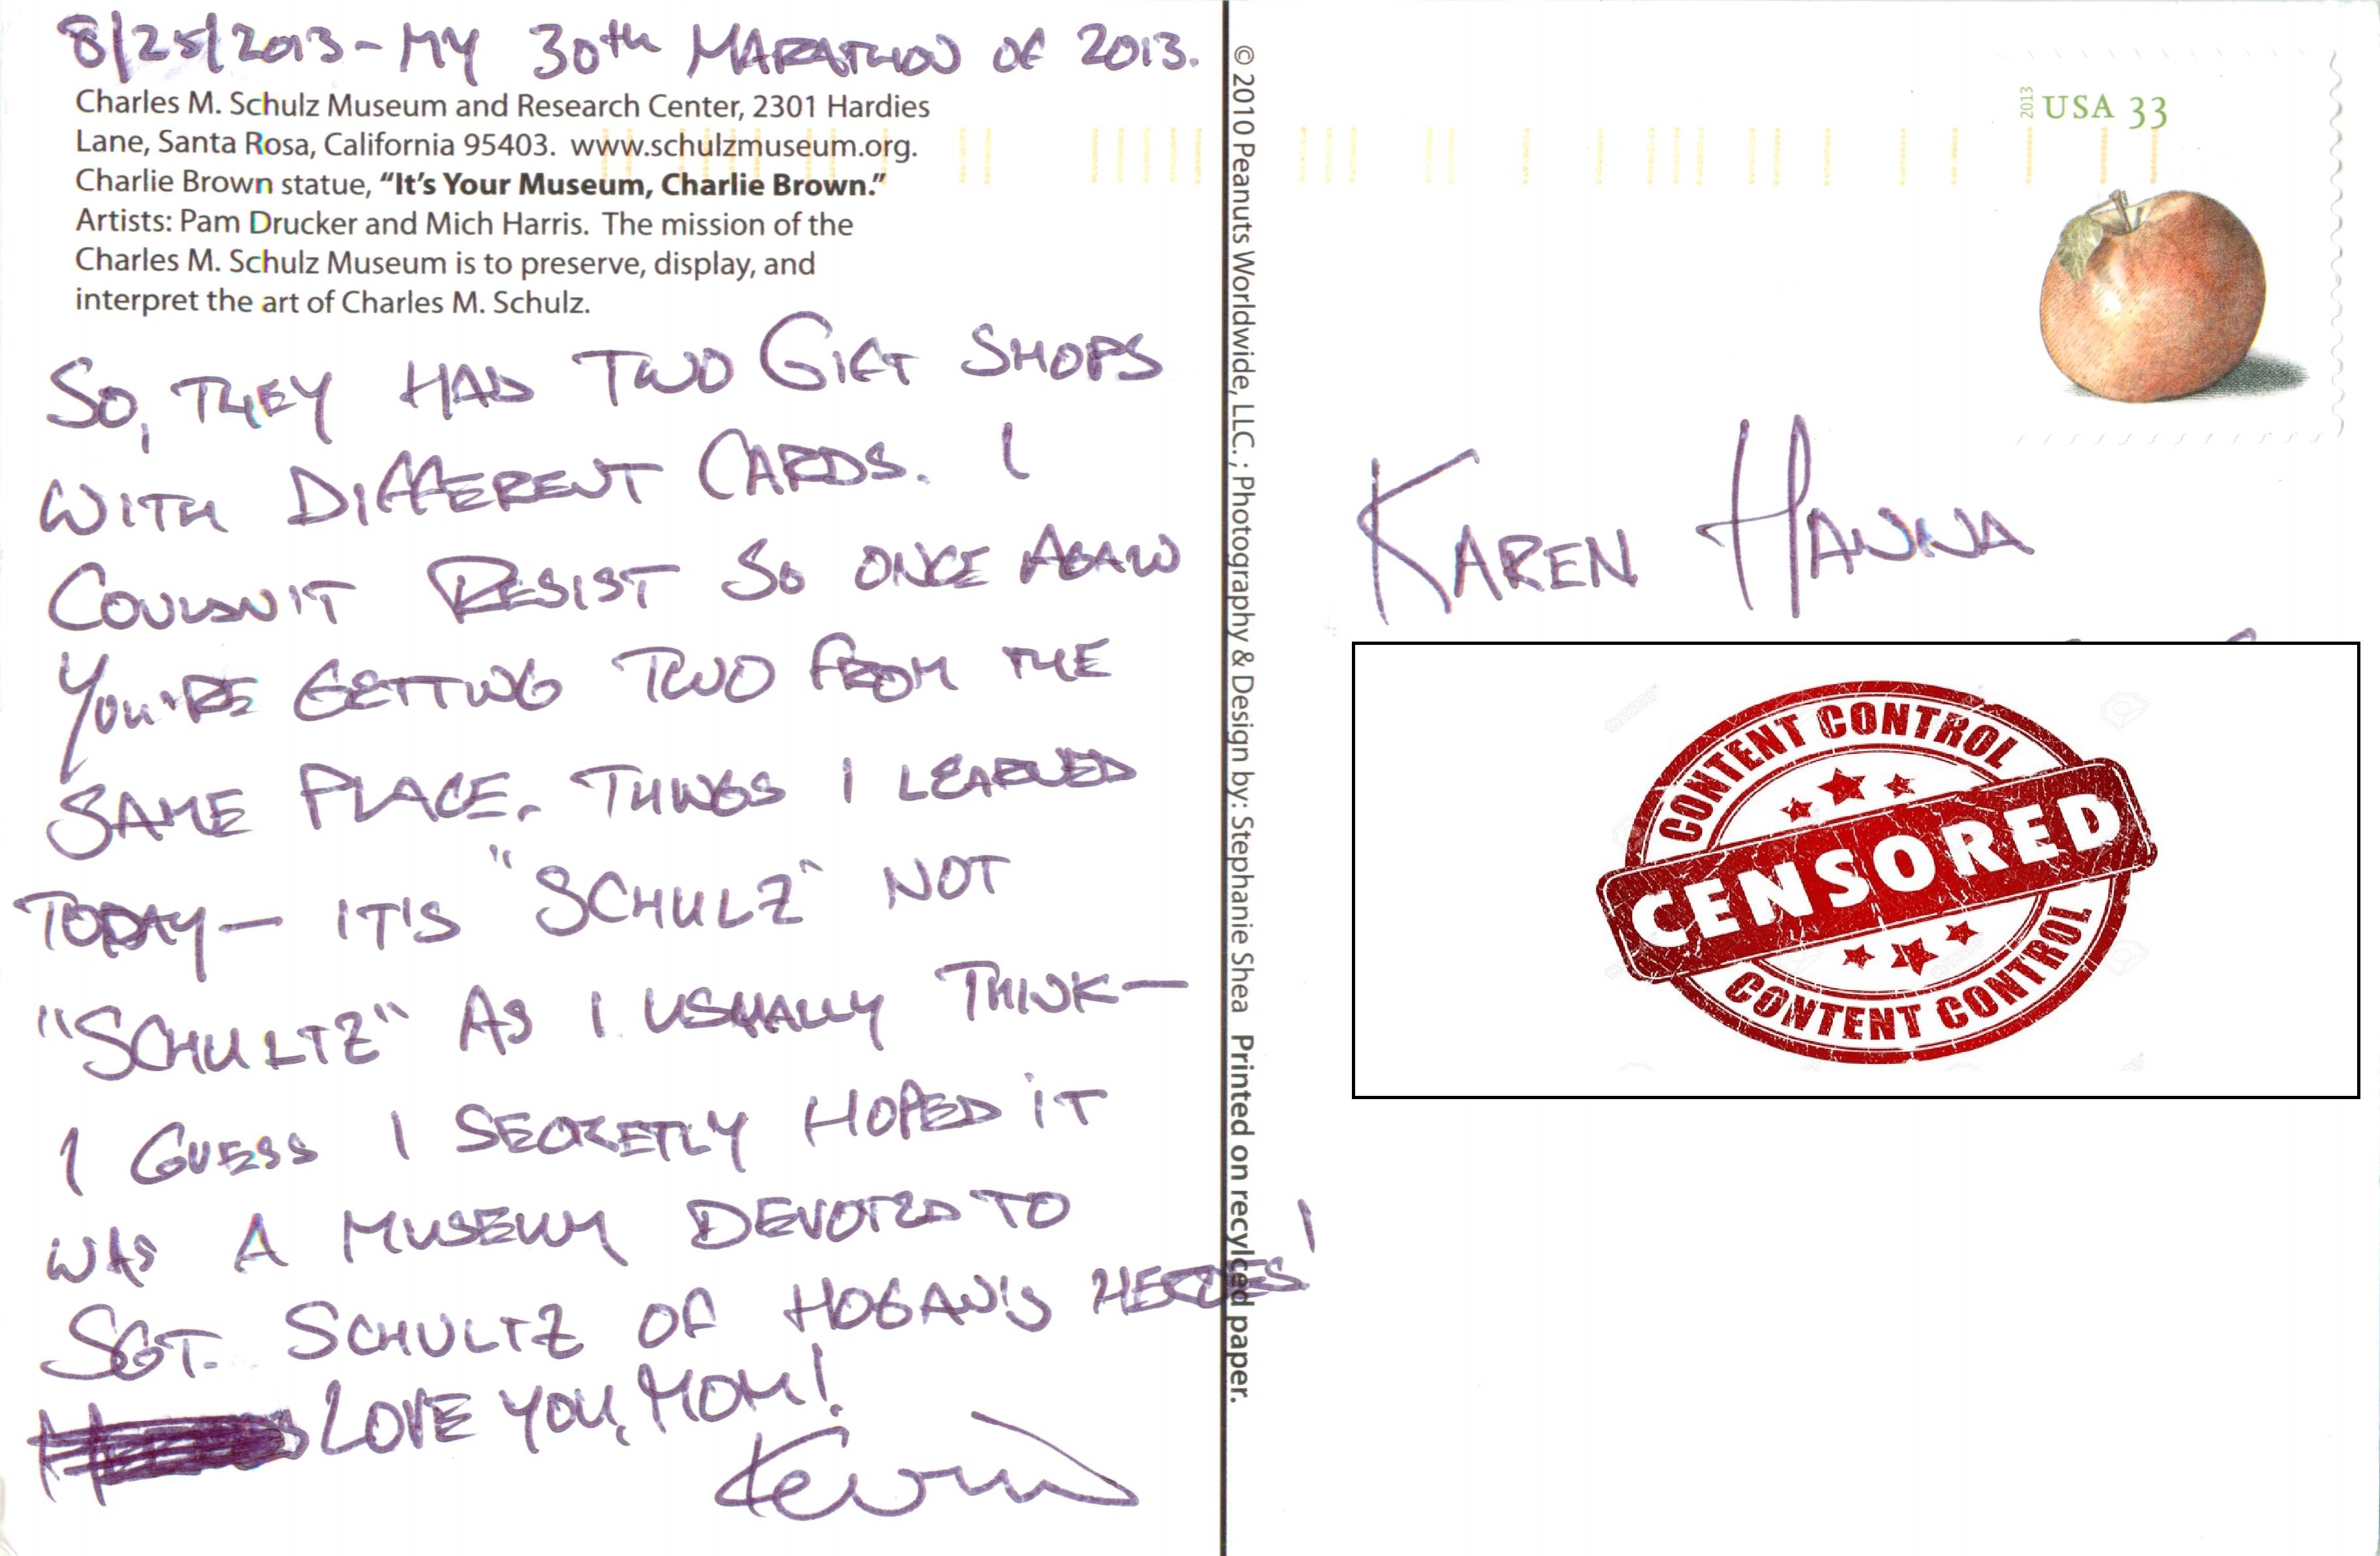 8/25/2013 - MY 30th MARATHON OF 2013.
Charles M. Schulz Museum and Research Center, 2301 Hardies
Lane, Santa Rosa, California 95403. www.schulzmuseum.org.
Charlie Brown statue, “It’s Your Museum, Charlie Brown.”
Artists: Pam Drucker and Mich Harris. The mission of the
Charles M. Schulz Museum is to preserve, display, and
interpret the art of Charles M. Schulz.
SO, THEY HAD TWO GIFT SHOPS
WITH DIFFERENT CARDS. I
COULDN'T RESIST SO ONCE AGAIN
YOU'RE GETTING TWO FROM THE
SAME PLACE. THINGS I LEARNED
TODAY — IT'S "SCHULZ" NOT
"SCHULTZ" AS I USUALLY THINK —
I GUESS I SECRETLY HOPED IT
WAS A MUSEUM DEVOTED TO
SGT. SCHULTZ OF HOGAN'S HEROES!
LOVE YOU, MOM!
Kevin
© 2010 Peanuts Worldwide, LLC.; Photography & Design by: Stephanie Shea Printed on recylced paper.
2013 USA 33
KAREN HANNA
CONTENT CONTROL
CENSORED
CONTENT CONTROL